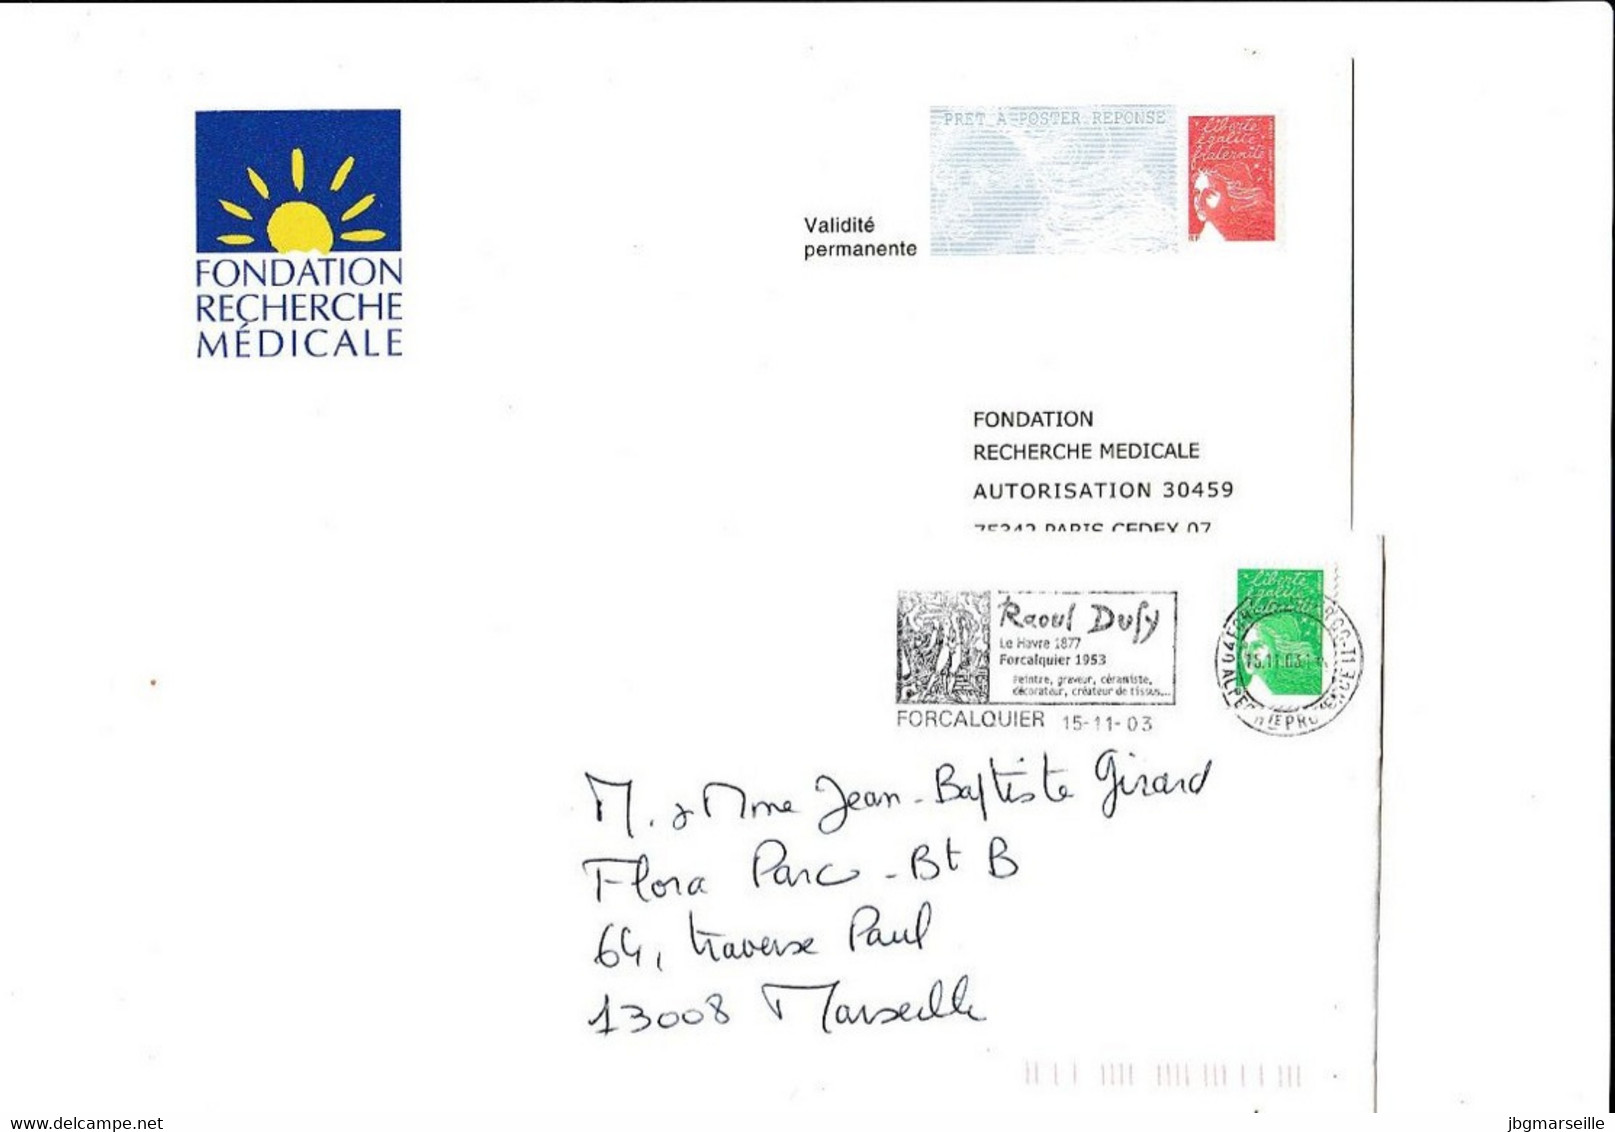 PRET A POSTER REPONSE
liberté
égalité
fraternité
Validité
permanente
FONDATION
RECHERCHE
MÉDICALE
FONDATION
RECHERCHE MEDICALE
AUTORISATION 30459
75342 PARIS CEDEX 07
liberté
égalité
fraternité
Raoul Dufy
Le Havre 1877
Forcalquier 1953
Peintre, graveur, céramiste,
décorateur, créateur de tissus...
FORCALQUIER 15-11-03
15.11.03
M. & Mme Jean-Baptiste Girard
Flora Parc - Bt B
64, traverse Paul
13008 Marseille
www.delcampe.net
jbgmarseille